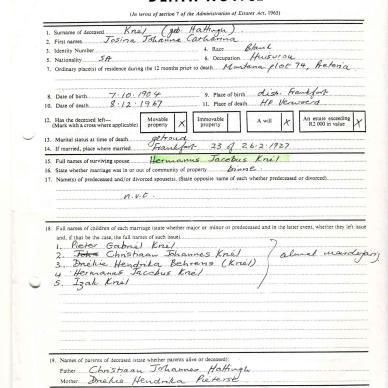 (In terms of section 7 of the Administration of Estates Act, 1965)
1. Surname of deceased Knël (geb. Hattingh)
2. First names Josina Johanna Catharina
3. Identity Number 4. Race Blank
5. Nationality SA 6. Occupation Huisvrou
7. Ordinary place(s) of residence during the 12 months prior to death Montana plot 74, Pretoria
8. Date of birth 7-10-1904 9. Place of birth dist. Frankfort
10. Date of death 8-12-1967 11. Place of death HF Verwoerd
12. Has the deceased left— (Mark with a cross where applicable) Movable property X Immovable property A will X An estate exceeding R2 000 in value X
13. Marital status at time of death getroud
14. If married, place where married Frankfort 23 of 26-2-1927
15. Full names of surviving spouse Hermanus Jacobus Knël
16. State whether marriage was in or out of community of property binne
17. Name(s) of predeceased and/or divorced spouse(s). (State opposite name of each whether predeceased or divorced).
n.v.t.
18. Full names of children of each marriage (state whether major or minor or predeceased and in the latter event, whether they left issue
and, if that be the case, the full names of such issue)
1. Pieter Gabriel Knël
2. Christiaan Johannes Knël
3. Hendrika Behrens (Knël)
4. Hermanus Jacobus Knël
5. Izak Knël
almal meerderjarig
19. Names of parents of deceased (state whether parents alive or deceased):
Father Christiaan Johannes Hattingh
Mother Hendrika Pieterse